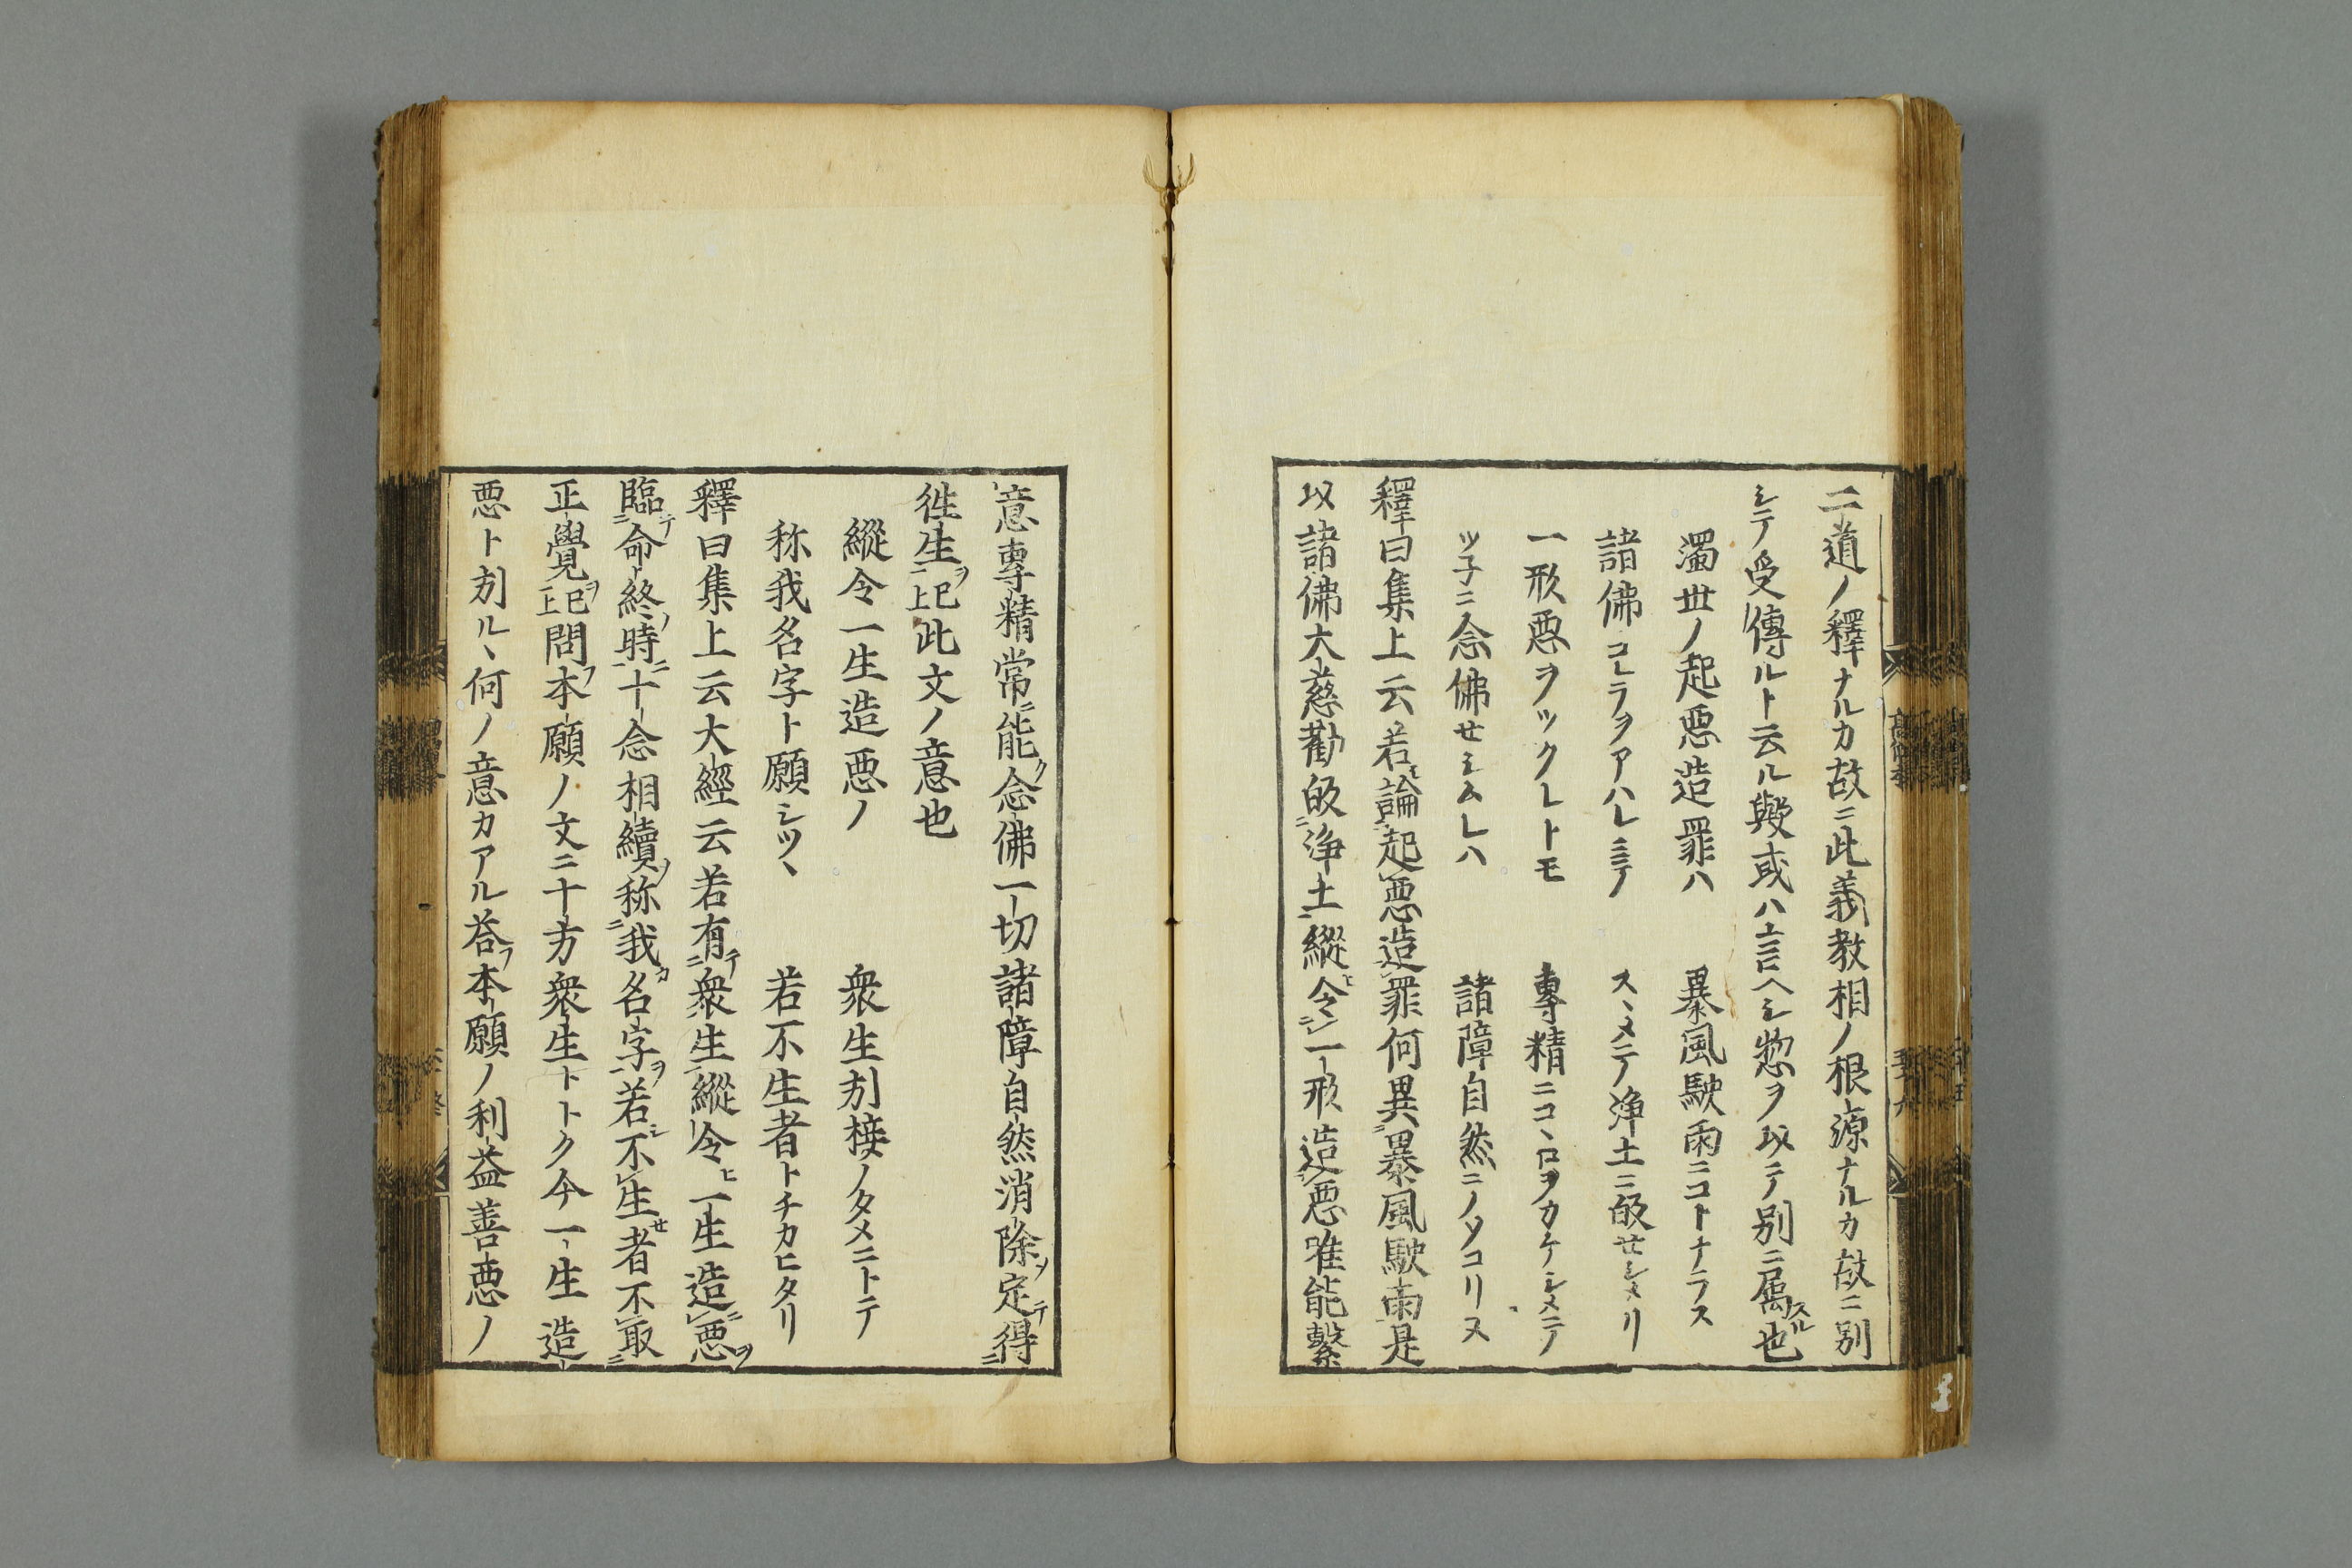 二道ノ釋ナルカ故ニ此義教相ノ根源ナルカ故ニ別
シテ受傳ルト云ル歟或ハ言ヘシ惣ヲ以テ別ニ属スル也
濁世ノ起悪造罪ハ 暴風駛雨ニコトナラス
諸佛コレラヲアハレミテ スヽメテ浄土ニ皈セシメリ
一形悪ヲツクレトモ 專精ニコヽロヲカケシメテ
ツ子ニ念佛セシムレハ 諸障自然ニノソコリヌ
釋曰集上云若論起悪造罪何異暴風駛雨是
以諸佛大慈勸皈浄土縱令一形造悪唯能繫
意專精常能念佛一切諸障自然消除定得
徃生已上此文ノ意也
縱令一生造悪ノ 衆生引接ノタメニトテ
称我名字ト願シツヽ 若不生者トチカヒタリ
釋曰集上云大經云若有衆生縱令一生造悪
臨命終時十念相續称我名字若不生者不取
正覺已上問本願ノ文ニ十方衆生トトク今一生造
悪ト引ルヽ何ノ意カアル荅本願ノ利益善悪ノ